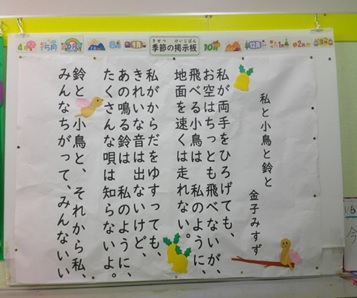 季節の掲示板
私と小鳥と鈴と
金子みすゞ
私が両手をひろげても、
お空はちっとも飛べないが、
飛べる小鳥は私のように、
地面を速くは走れない。
私がからだをゆすっても、
きれいな音は出ないけど、
あの鳴る鈴は私のように、
たくさんな唄は知らないよ。
鈴と、小鳥と、それから私、
みんなちがって、みんないい。